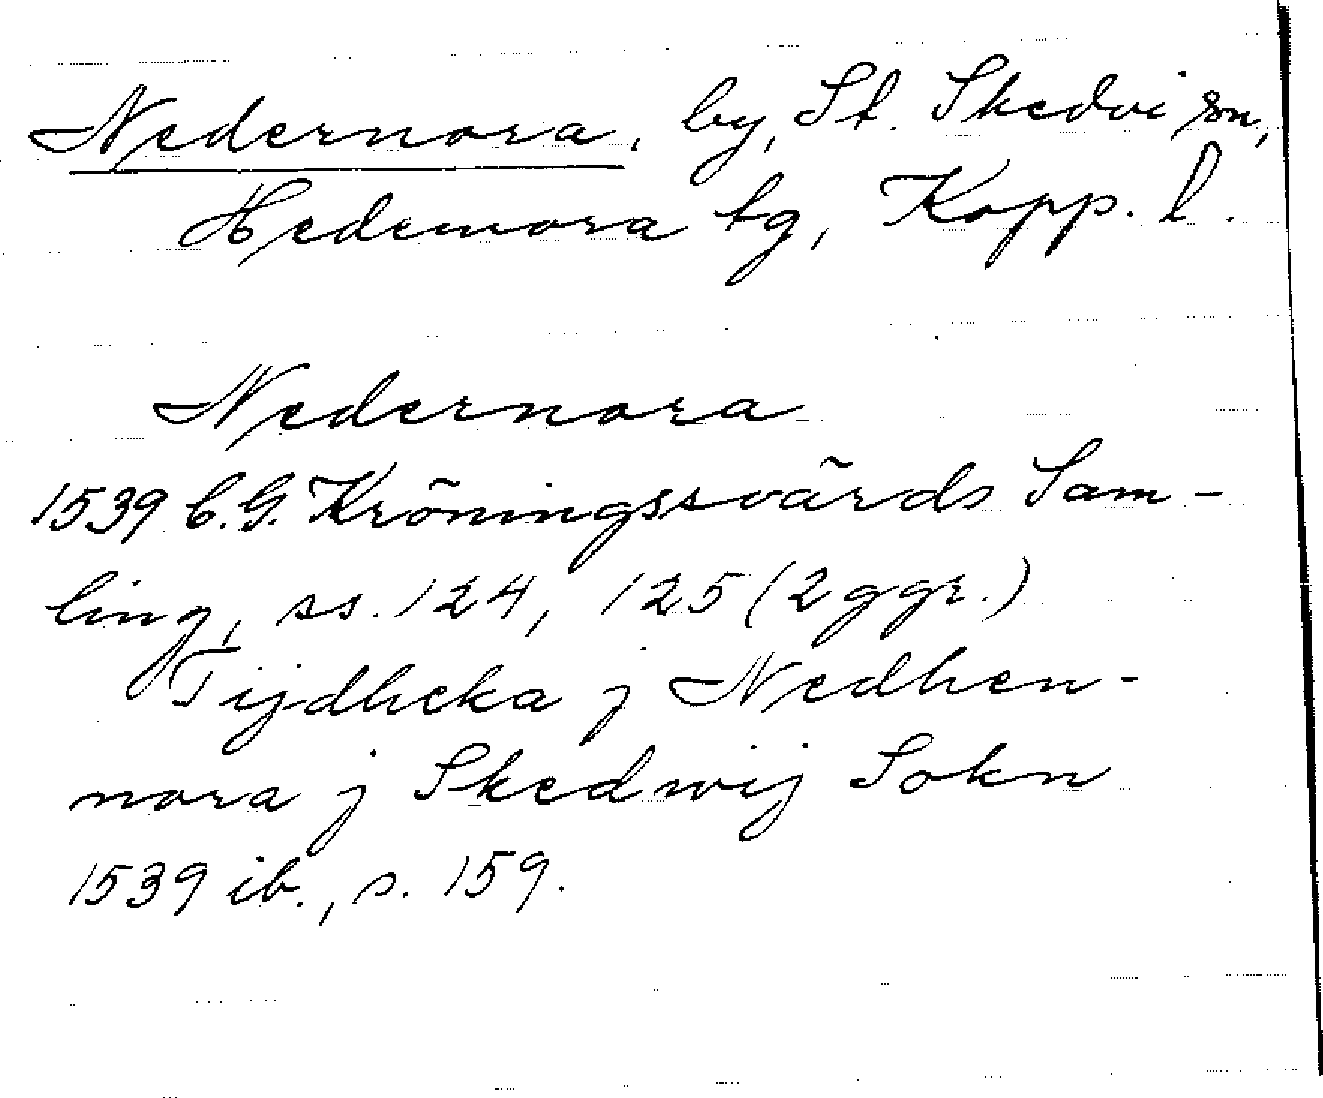 Nedernora, by, St. Skedvi sn,
Hedemora tg, Kopp. l.
Nedernora
1539 C.G. Kröningssvärds Sam-
ling, ss. 124, 125 (2 ggr.)
Tijdheka j Nedhen-
nora j Skedwij Sokn
1539 ib., s. 159.